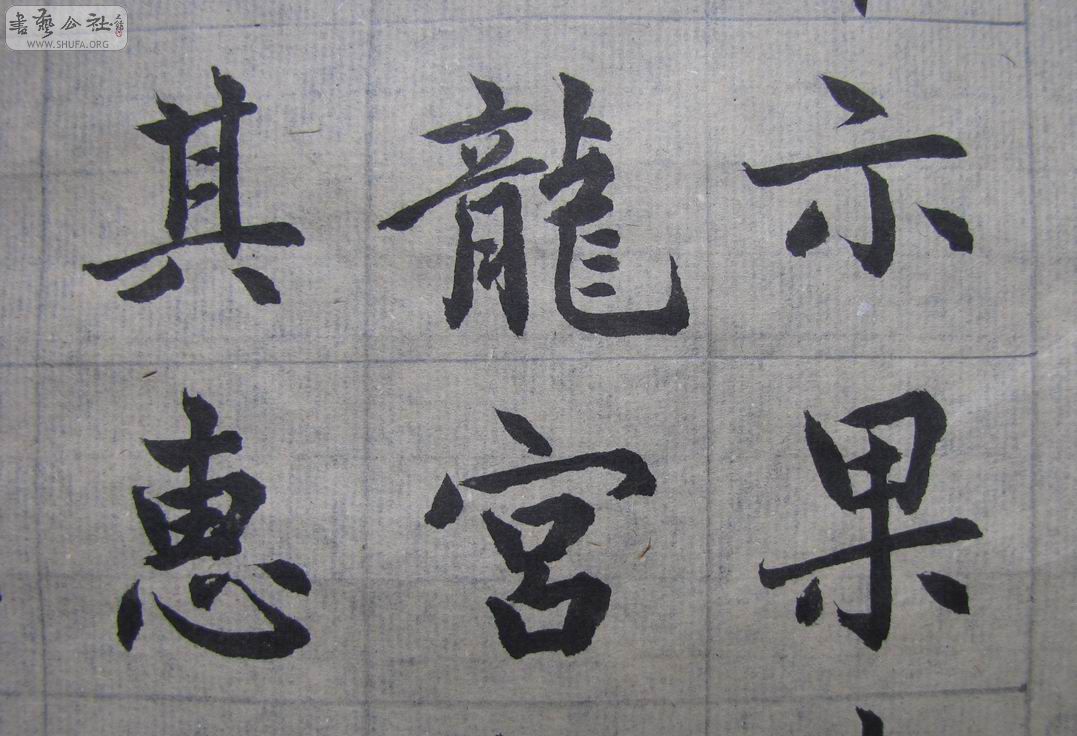 示果
龍宮
其惠
書藝公社
WWW.SHUFA.ORG